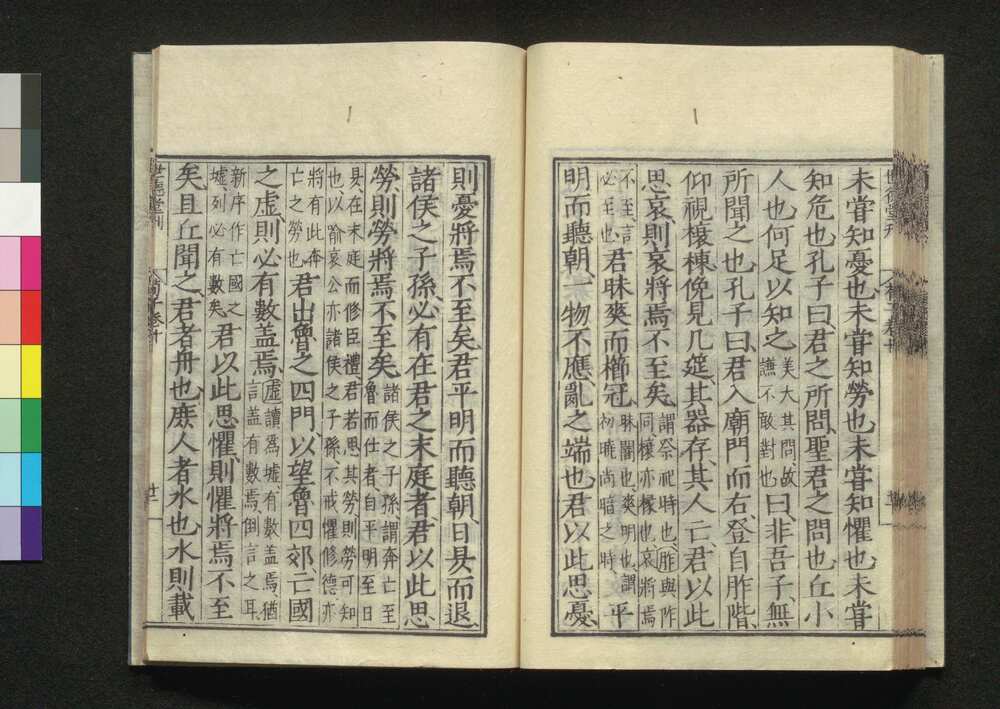 未嘗知憂也未嘗知勞也未嘗知懼也未嘗
知危也孔子曰君之所問聖君之問也丘小
人也何足以知之美大其問故譙不敢對也曰非吾子無
所聞之也孔子曰君入廟門而右登自胙階
仰視榱棟俛見几筵其器存其人亡君以此
思哀則哀將焉不至矣謂祭祀時也胙與阼同榱亦椽也哀將焉
不至言必至也君昧爽而櫛冠昧闇也爽明也謂初曉尚暗之時平
明而聽朝一物不應亂之端也君以此思憂
則憂將焉不至矣君平明而聽朝日昃而退
諸侯之子孫必有在君之末庭者君以此思
勞則勞將焉不至矣諸侯之子孫謂奔亡至魯而仕者自平明至日
昃在末庭而修臣禮君若思其勞則勞可知也以喻哀公亦諸侯之子孫不戒懼修德亦
將有此奔亡之勞也君出魯之四門以望魯四郊亡國
之虛則必有數盖焉虛讀爲墟有數盖焉猶言盖有數焉倒言之耳
新序作亡國之墟列必有數矣君以此思懼則懼將焉不至
矣且丘聞之君者舟也庶人者水也水則載
世德堂刊
荀子卷十